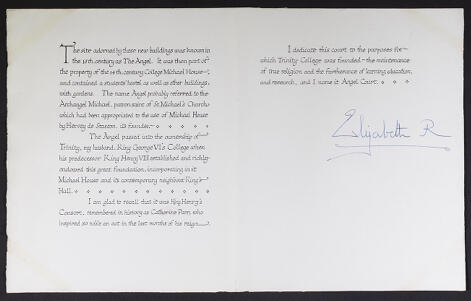 The site adorned by these new buildings was known in
the 15th century as The Angel. It was then part of
the property of the 14th century College Michael House
and contained a students' hostel as well as other buildings
with gardens. The name Angel probably referred to the
Archangel Michael, patron saint of St. Michael's Church
which had been appropriated to the use of Michael House
by Hervey de Stanton, its founder.
The Angel passed into the ownership of
Trinity, my husband, King George VI's College when
his predecessor King Henry VIII established and richly
endowed this great foundation, incorporating in it
Michael House and its contemporary neighbour King's
Hall.
I am glad to recall that it was King Henry's
Consort, remembered in history as Catherine Parr, who
inspired so noble an act in the last months of his reign
I dedicate this court to the purposes for
which Trinity College was founded - the maintenance
of true religion and the furtherance of learning, education,
and research, and I name it Angel Court.
Elizabeth R